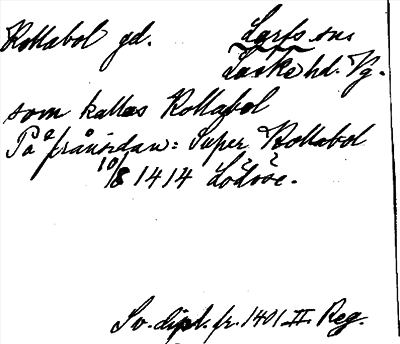 Rollabol gd. Larfs sn.
Laske hd. Vg.
som kallas Rollabol
På frånsidan: Super Rollabol
10/8 1414 Lödöse.
Sv. dipl. fr. 1401 II. Reg.